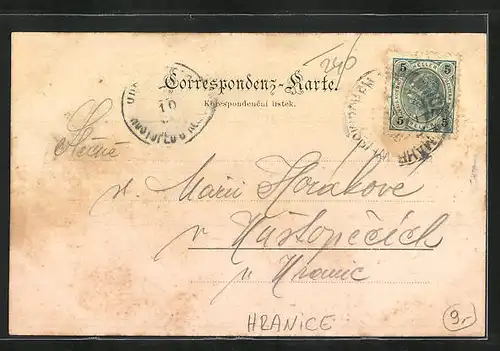 240
Correspondenz-Karte.
Korespondenční lístek.
5 5
5 5
10
Slečně
sl. Marii Horákove
v Hustopečích
u Hranic
HRANICE
9,-